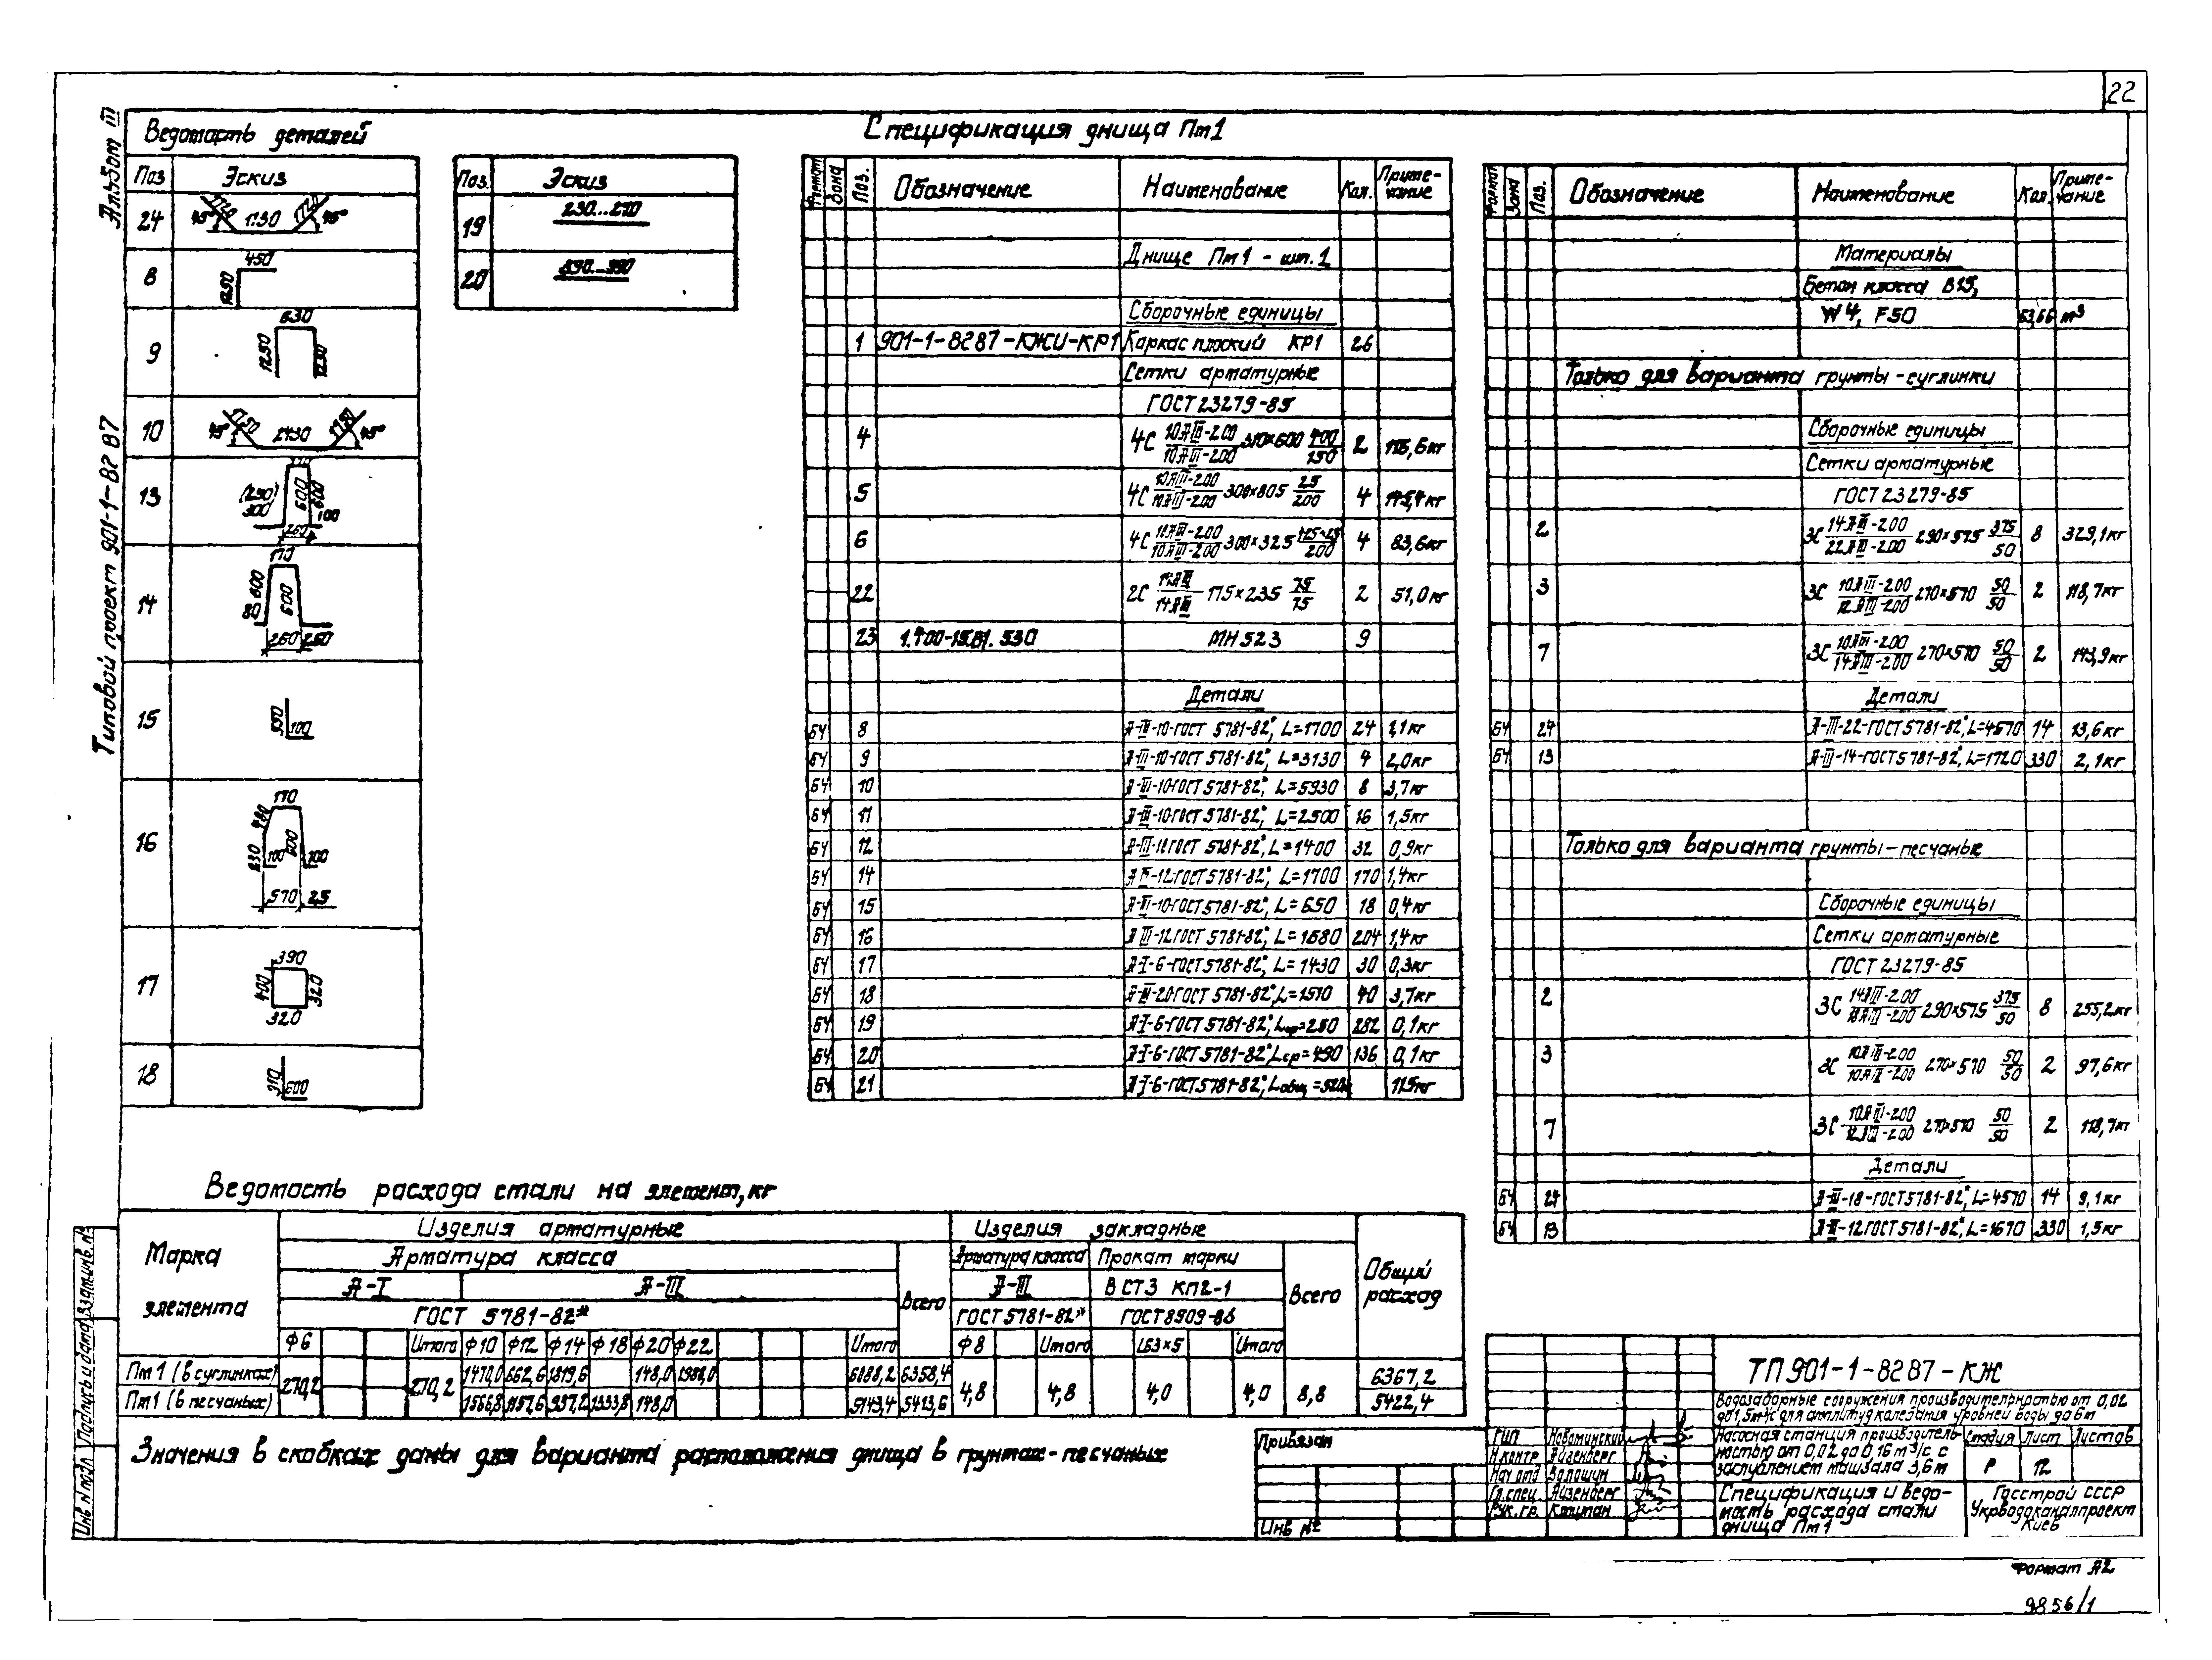 22
Альбом III
Типовой проект 901-1-82 87
Ведомость деталей
Поз Эскиз
24 45° 1720 1130 1720 45°
8 450 1250
9 630 1250 1250
10 45° 1750 2430 1750 45°
13 (250) 300 600 600 100 260
14 170 600 80 600 260 250
15 550 100
16 170 230 100 600 100
570 25
17 390 400 320
320
18 910 600
Поз. Эскиз
19 230...270
20 890...990
Спецификация днища Пм1
Формат Зона Поз. Обозначение Наименование Кол. Приме-чание
Днище Пм1 - шт. 1
Сборочные единицы
1 901-1-8287-КЖИ-КР1 Каркас плоский КР1 26
Сетки арматурные
ГОСТ 23279-85
4 4С 10АIII-200/10АIII-200 310×600 400/150 2
5 4С 10АIII-200/10АIII-200 300×805 25/200 4 145,4кг
6 4С 10АIII-200/10АIII-200 300×325 125+25/200 4 83,6кг
22 2С 14АIII/14АIII 175×235 75/75 2 51,0кг
23 1.400-15.В1. 530 МН 523 9
Детали
БЧ 8 А-III-10-ГОСТ 5781-82*, L=1700 24 1,1кг
БЧ 9 А-III-10-ГОСТ 5781-82*, L=3130 4 2,0кг
БЧ 10 А-III-10-ГОСТ 5781-82*, L=5930 8 3,7кг
БЧ 11 А-III-10-ГОСТ 5781-82*, L=2500 16 1,5кг
БЧ 12 А-III-10 ГОСТ 5781-82*, L=1400 32 0,9кг
БЧ 14 А-III-12-ГОСТ 5781-82*, L=1700 170 1,4кг
БЧ 15 А-III-10-ГОСТ 5781-82*, L=650 18 0,4кг
БЧ 16 А-III-12-ГОСТ 5781-82*, L=1680 204 1,4кг
БЧ 17 А-I-6-ГОСТ 5781-82*, L=1430 30 0,3кг
БЧ 18 А-III-20-ГОСТ 5781-82*, L=1510 40 3,7кг
БЧ 19 А-I-6-ГОСТ 5781-82*, Lср=250 282 0,1кг
БЧ 20 А-I-6-ГОСТ 5781-82*, Lср=490 136 0,1кг
БЧ 21 А-I-6-ГОСТ 5781-82*, Lобщ=520м 115кг
Формат Зона Поз. Обозначение Наименование Кол. Приме-чание
Материалы
Бетон класса В15,
W4, F50 53,66 м³
Только для варианта грунты-суглинки
Сборочные единицы
Сетки арматурные
ГОСТ 23279-85
2 3С 14АIII-200/22АIII-200 290×575 375/50 8 329,1кг
3 3С 10АIII-200/12АIII-200 270×570 50/50 2 118,7кг
7 3С 10АIII-200/14АIII-200 270×570 50/50 2 143,9кг
Детали
БЧ 24 А-III-22-ГОСТ 5781-82*, L=4570 14 13,6кг
БЧ 13 А-III-14-ГОСТ 5781-82*, L=1720 330 2,1кг
Только для варианта грунты-песчаные
Сборочные единицы
Сетки арматурные
ГОСТ 23279-85
2 3С 14АIII-200/18АIII-200 290×575 375/50 8 255,2кг
3 3С 10АIII-200/10АIII-200 270×570 50/50 2 97,6кг
7 3С 10АIII-200/12АIII-200 270×570 50/50 2 118,7кг
Детали
БЧ 24 А-III-18-ГОСТ 5781-82*, L=4570 14 9,1кг
БЧ 13 А-III-12 ГОСТ 5781-82*, L=1670 330 1,5кг
Ведомость расхода стали на элемент, кг
Марка элемента Изделия арматурные Изделия закладные Общий расход
Арматура класса Всего Арматура класса Прокат марки Всего
А-I А-III А-III ВСТ3 КП2-1
ГОСТ 5781-82* ГОСТ 5781-82* ГОСТ 8509-86
Ф6 Итого Ф10 Ф12 Ф14 Ф18 Ф20 Ф22 Итого Ф8 Итого L63×5 Итого
Пм1 (в суглинках) 270,2 270,2 1470,0 662,6 1819,6 148,0 1988,0 6088,2 6358,4 4,8 4,8 4,0 4,0 8,8 6367,2
Пм1 (в песчаных) 1566,8 1157,6 937,2 1333,8 148,0 5143,4 5413,6 5422,4
Значения в скобках даны для варианта расположения днища в грунтах-песчаных
Инв № подл Подпись и дата Взам. инв. №
Привязан
Инв №
ТП 901-1-8287-КЖ
Водозаборные сооружения производительностью от 0,02
до 1,5м³/с для амплитуд колебания уровней воды до 6м
ГИП Новоминский
Н.контр. Айзенберг
Нач.отд Волошин
Гл.спец. Айзенберг
Рук.гр.
Насосная станция производитель-
ностью от 0,02 до 0,16 м³/с с
заглублением машзала 3,6м
Стадия Лист Листов
Р 12
Спецификация и ведо-
мость расхода стали
днища Пм1
Госстрой СССР
Укрводоканалпроект
Киев
Формат А2
9856/1